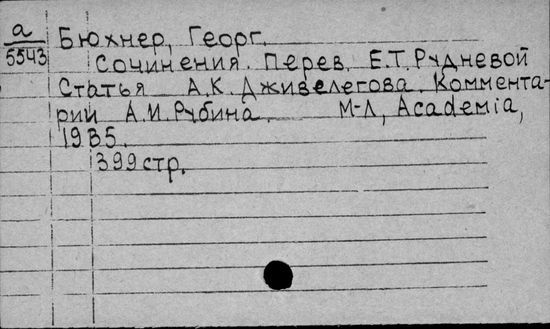 а
5543
Бюхнер, Георг.
Сочинения. Перев. Е.Т. Рудневой
Статья А.К. Дживелегова. Коммента-
рий А.И. Рубина. М-Л, Academia,
1935.
399 стр.